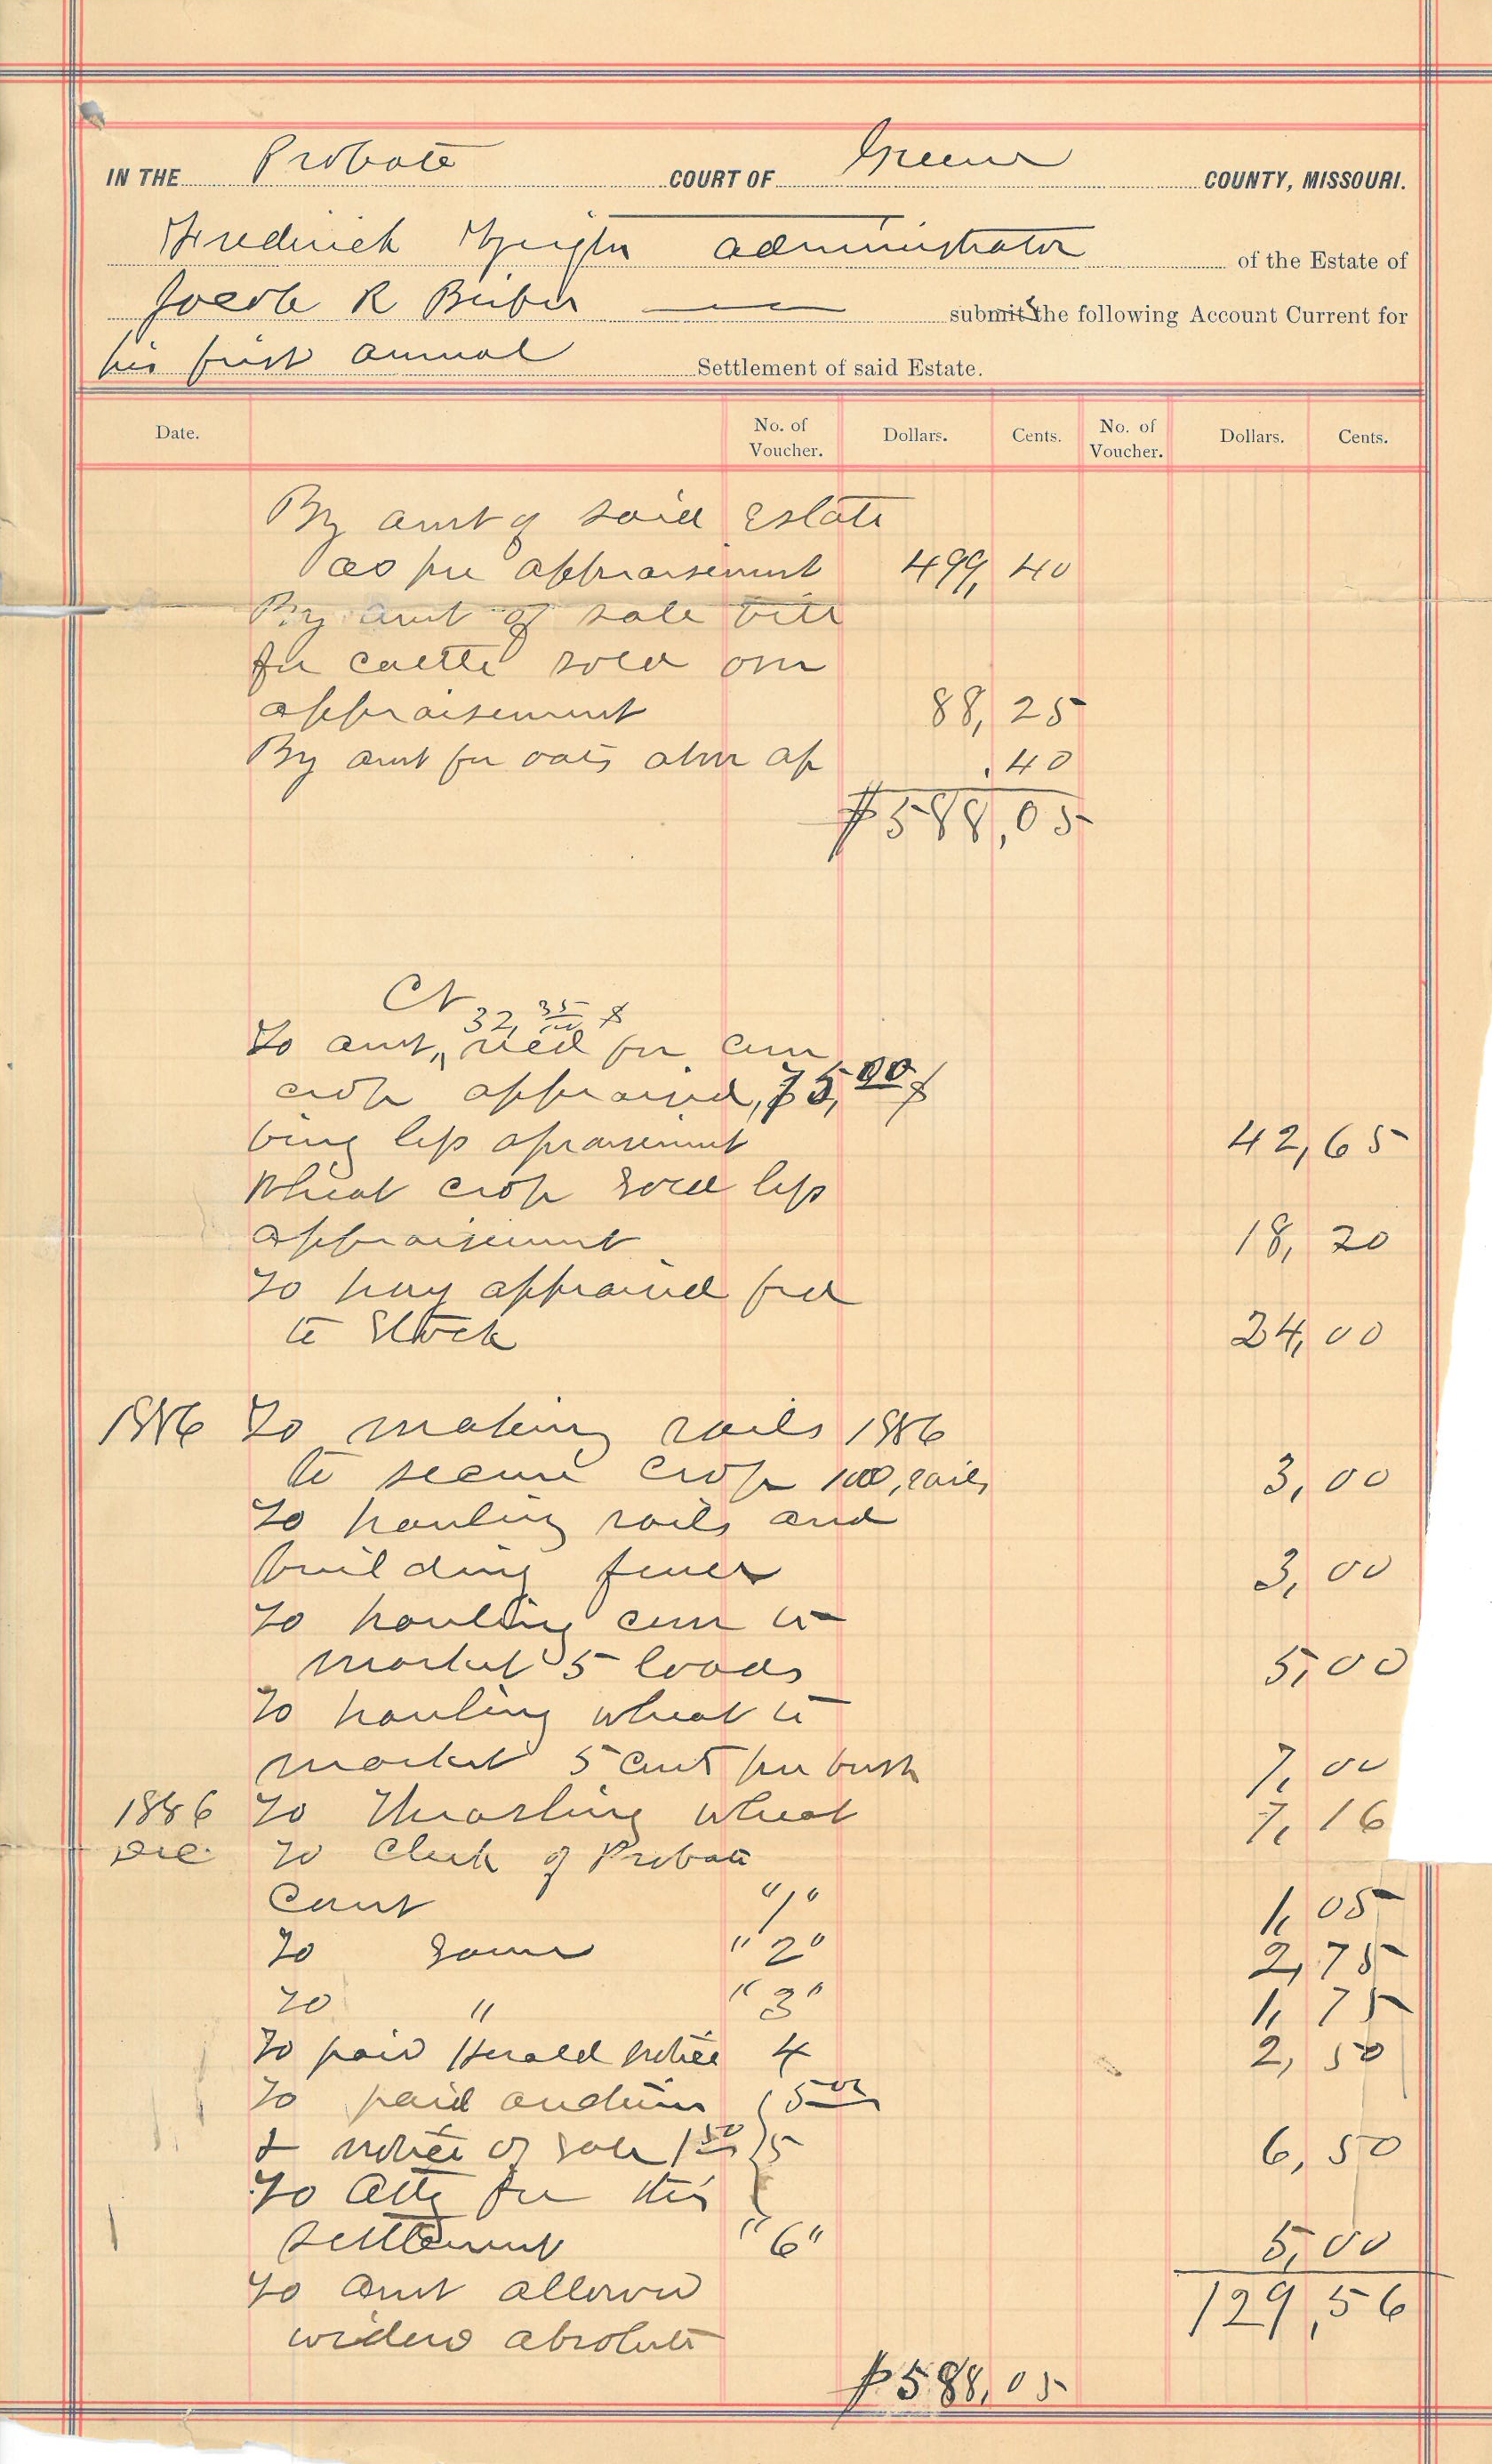 IN THE Probate COURT OF Greene COUNTY, MISSOURI.
Frederick administrator of the Estate of
Jacob R submits the following Account Current for
his first annual Settlement of said Estate.
Date. No. of Voucher. Dollars. Cents. No. of Voucher. Dollars. Cents.
By amt of said Estate
as per appraisement 499, 40
By amt of sale bill
for cattle sold over
appraisement 88, 25
By amt for oats abov ap .40
$588,05
Cr
32, 35/100 $
To amt, recd for corn
crop appraised, 75,00 $
being less apraisement 42,65
Wheat crop sold less
appraisement 18, 20
To hay appraised fed
to Stock 24,00
1886 To making rails 1886
to secure crop 100, rails 3,00
To hauling rails and
building fence 3,00
To hauling corn to
market 5 loads 5,00
To hauling wheat to
market 5 cents per bush 7,00
1886 To thrashing wheat 7,16
Dec. To Clerk of Probate
Court "1" 1,05
To Same "2" 2,75
To " "3" 1,75
To paid Herald notice 4 2,50
To paid 5 00
& notice of sale 1 50 5 6,50
To Atty for this
settlement "6" 5,00
To amt allowed 129,56
widow absolute
$588,05